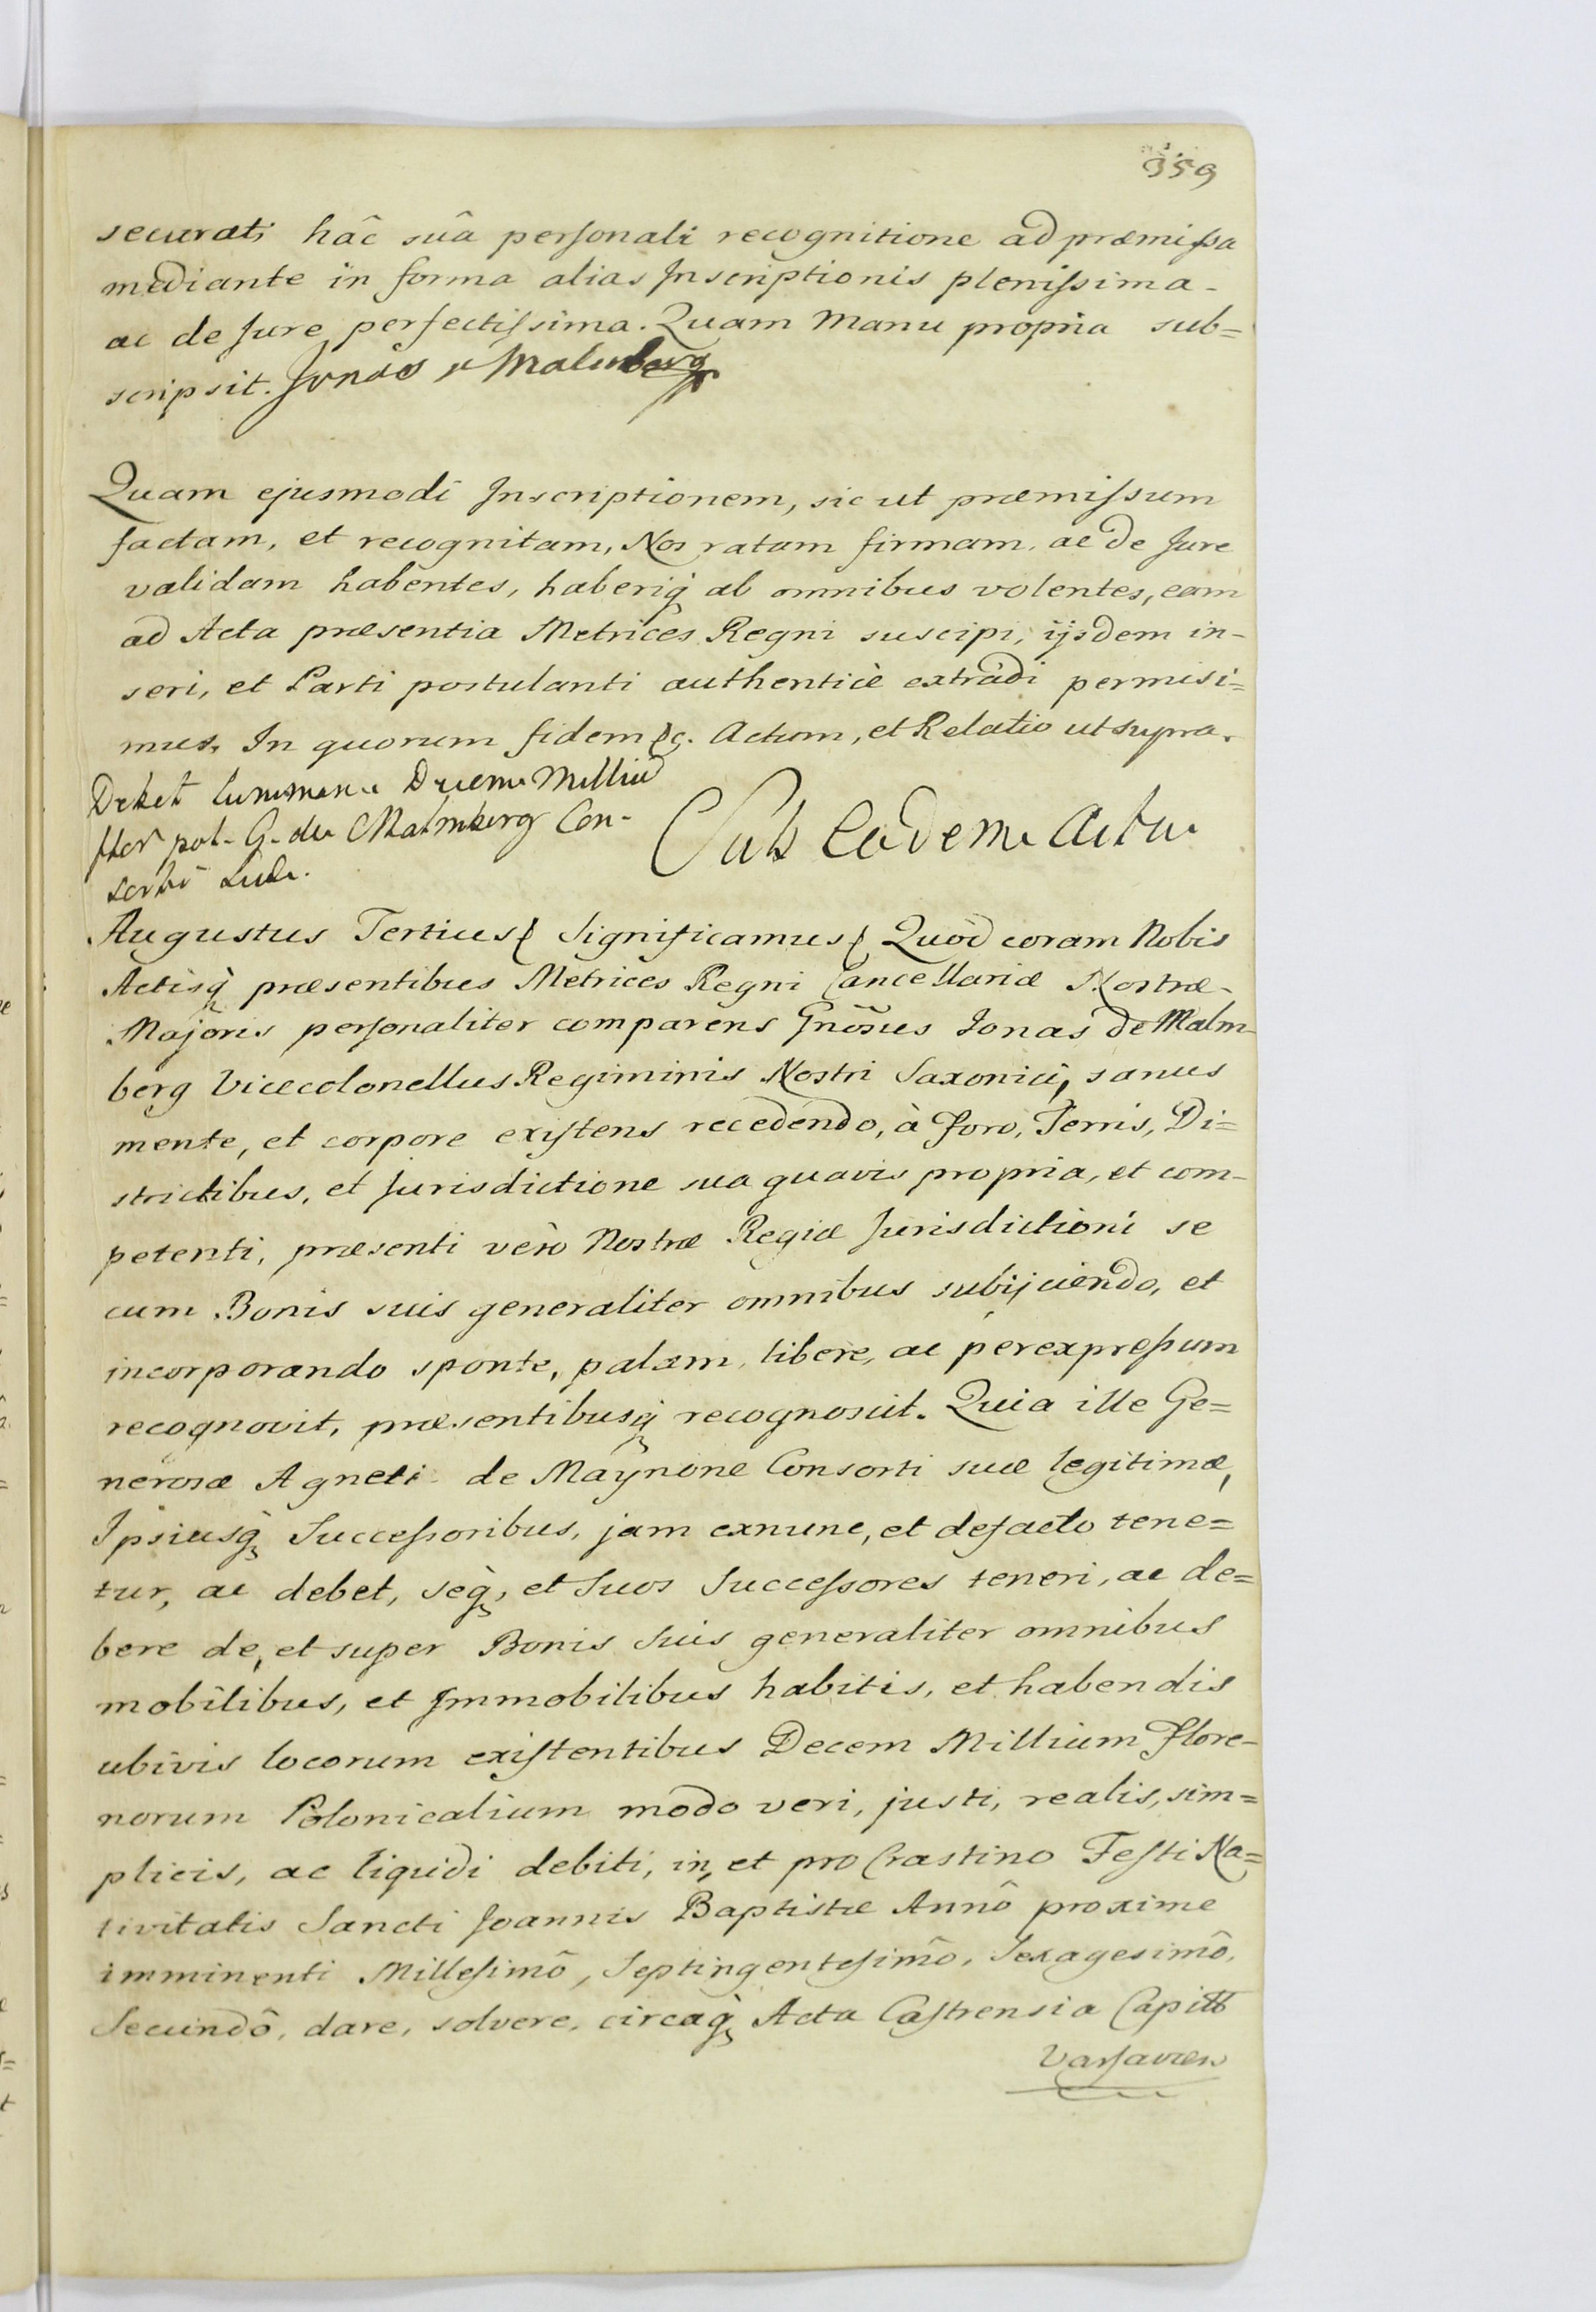 359
securati hâc suâ personali recognitione ad præmissa
mediante in forma alias Inscriptionis plenissima
ac de Jure perfectissima. Quam Manu propria sub=
scripsit. Jonas v Malmberg
Quam ejusmodi Inscriptionem, sic ut præmissum
factam, et recognitam, Nos ratam firmam, ac de Jure
validam habentes, haberiq̀ ab omnibus volentes, eam
ad Acta præsentia Metrices Regni suscipi, ijsdem in-
seri, et Parti postulanti authenticè extradi permisi=
mus. In quorum fidem &c. Actum, et Relatio ut supra.
Debet summam Decem Milliū
flor pol. G. de Malmberg Con-
sorti suæ.
Sub eodem Actu
Augustus Tertius Significamus Quòd coram Nobis
Actisq̀ præsentibus Metrices Regni Cancellariæ Nostræ
Majoris personaliter comparens Gnõsus Jonas de Malm
berg Vicecolonellus Regiminis Nostri Saxonici, sanus
mente, et corpore existens recedendo, à Foro, Terris, Di=
strictibus, et Jurisdictione sua quavis propria, et com-
petenti, præsenti verò Nostræ Regiæ Jurisdictioni se
cum Bonis suis generaliter omnibus subijciendo, et
incorporando sponte, palam, libere, ac perexpressum
recognovit, præsentibusq̀ recognoscit. Quia ille Ge=
nerosæ Agneti de Maÿnone Consorti suæ legitimæ,
Ipsiusq̀ Successoribus, jam exnunc, et defacto tene=
tur, ac debet, seq̀, et Suos Successores teneri, ac de=
bere de, et super Bonis Suis generaliter omnibus
mobilibus, et Immobilibus habitis, et habendis
ubivis locorum existentibus Decem Millium Flore-
norum Polonicalium modo veri, justi, realis, sim=
plicis, ac liquidi debiti, in, et pro Crastino Festi Na=
tivitatis Sancti Joannis Baptistæ Annô proxime
imminenti Millesimô, Septingentesimô, Sexagesimô,
Secundô, dare, solvere, circaq̀ Acta Castrensia Capitt
Varsavien